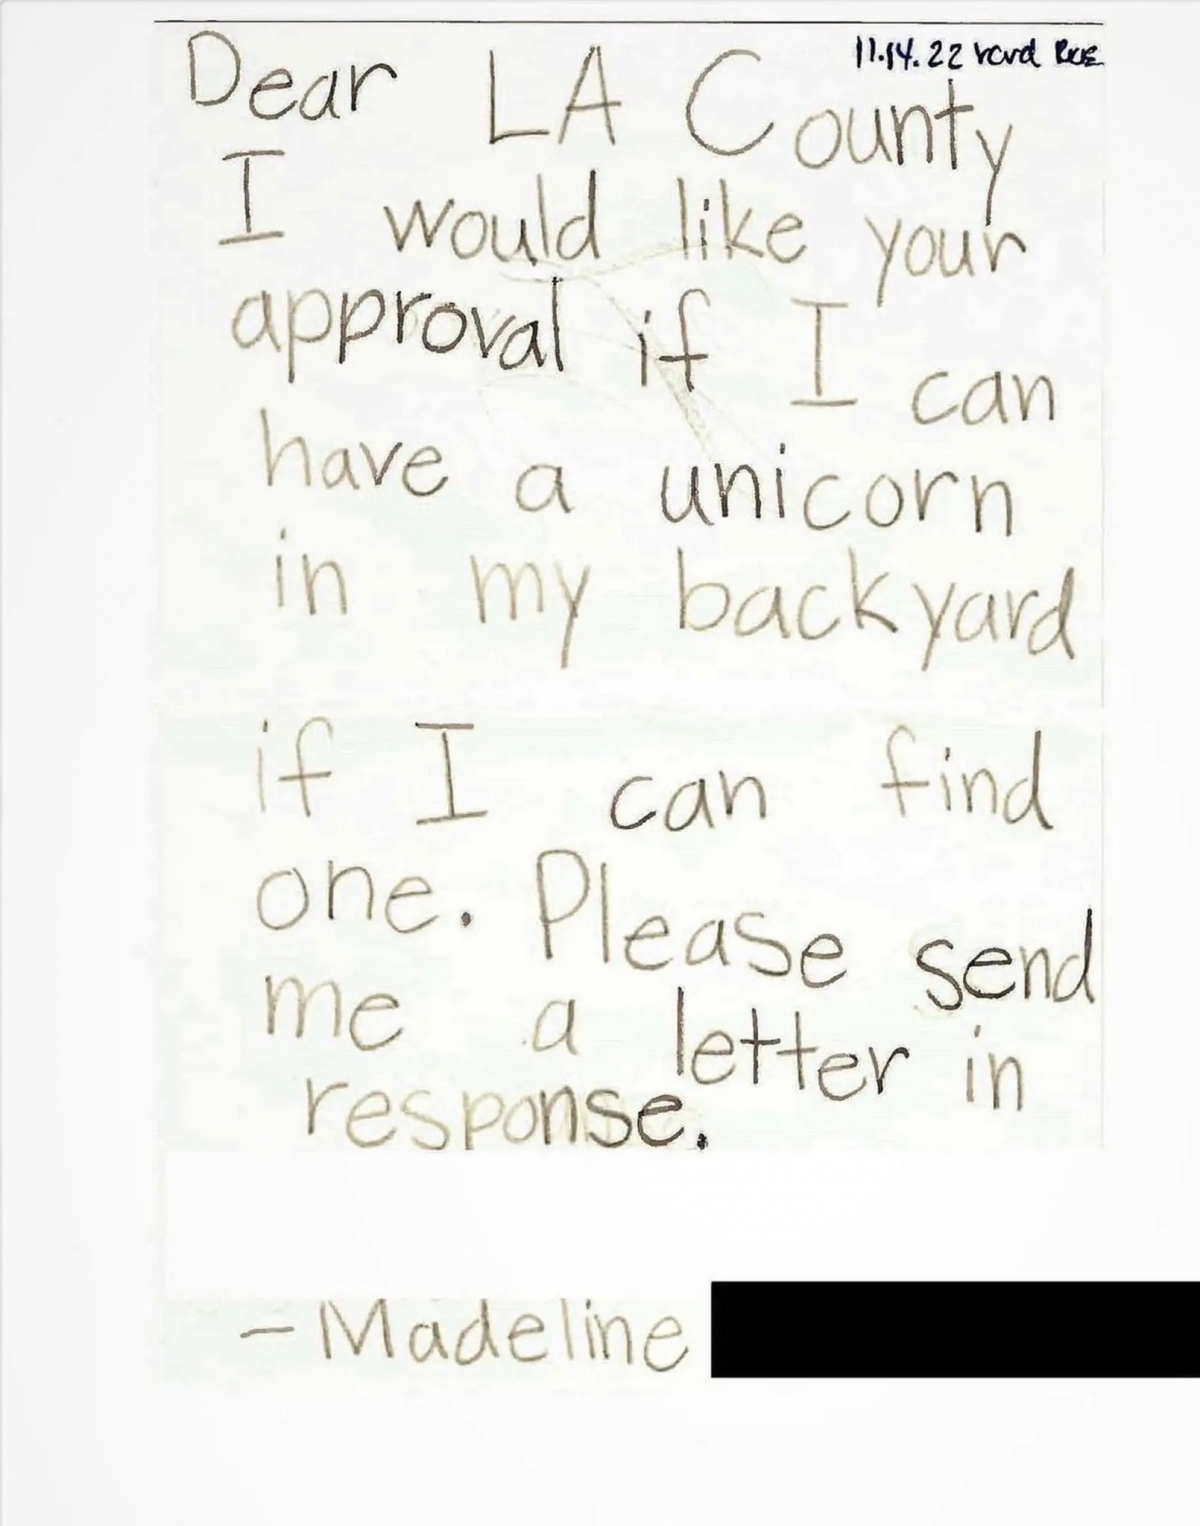 11.14.22 rcvd
Dear LA County
I would like your
approval if I can
have a unicorn
in my backyard
if I can find
one. Please send
me a letter in
response.
– Madeline